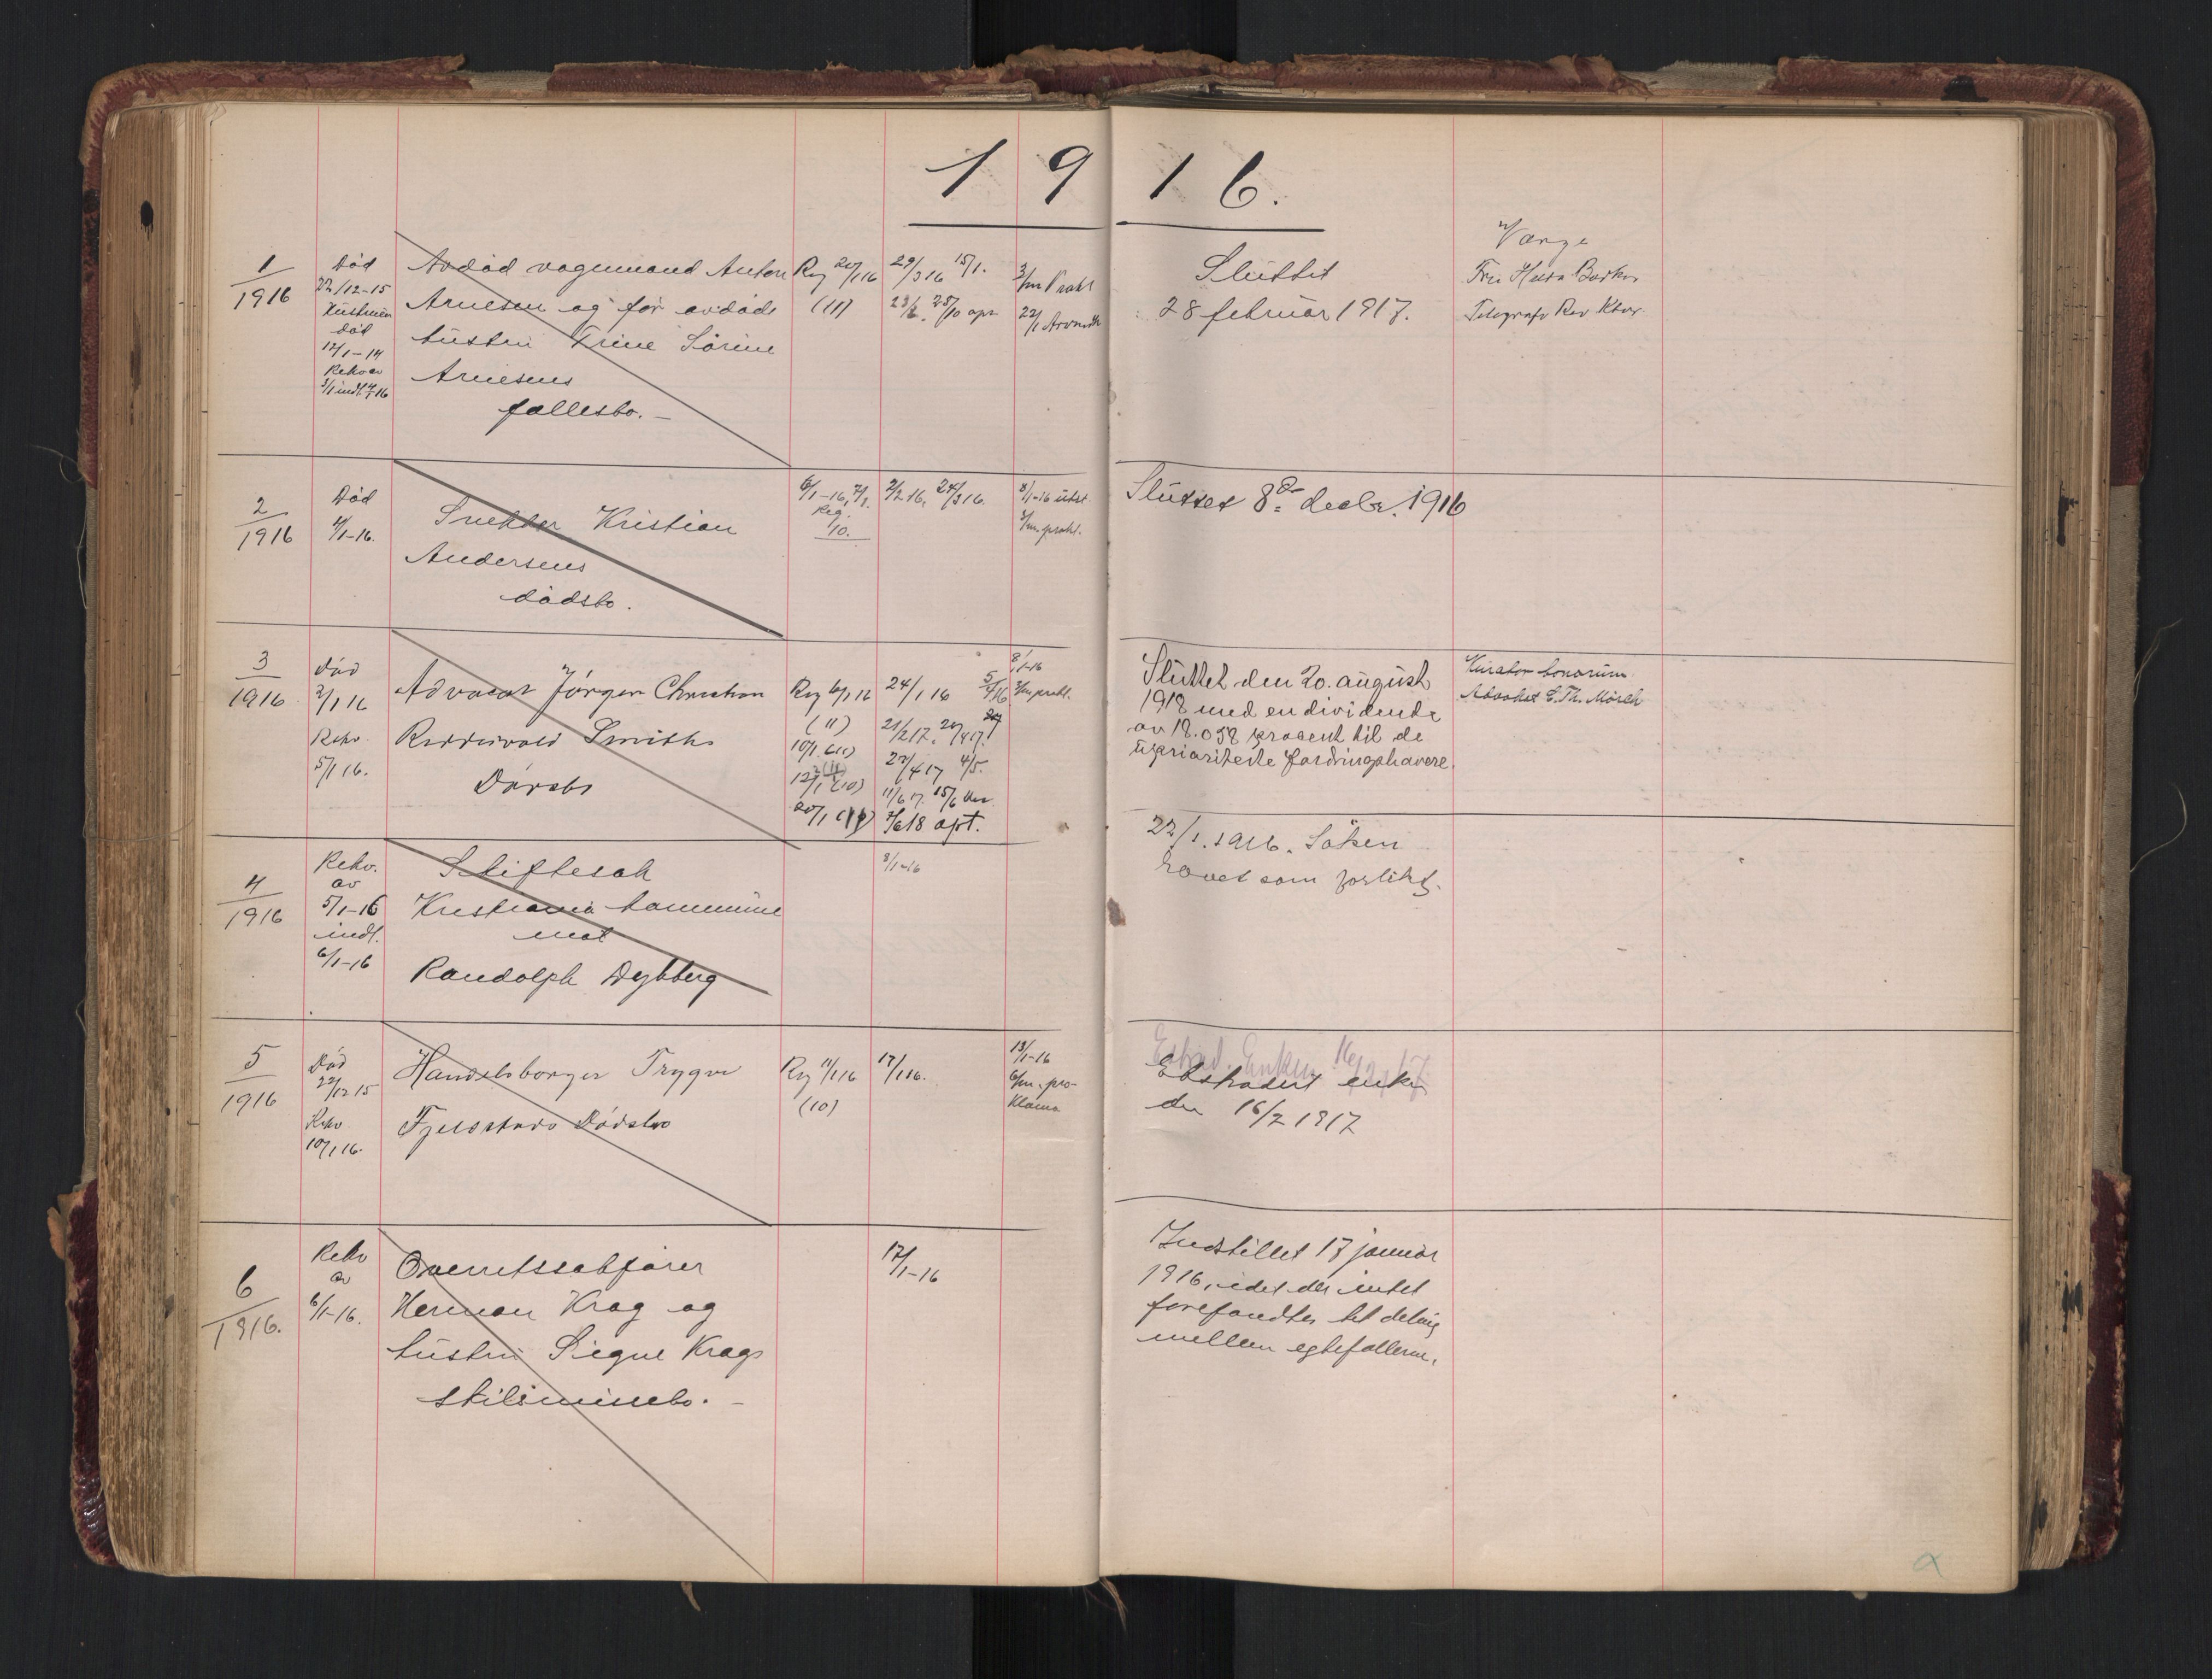 1916.
1/1916
Död
22/12-15
Hustruen
död
12/1-14
Rekv av
3/1 indl. 7-16
Avdöd vognmand Anton
Arnesen og før avdöde
hustru Trine Sörine
Arnesens
fællesbo.-
Reg 20/1 16
(11)
29/3 16 15/1.
23/6. 25/10 apr
3/m Prokl
22/1
Sluttet
28 februar 1917.
Værge
Telegraf
2/1916
Död
4/1-16.
Snekker Kristian
Andersens
dödsbo.
6/1-16, 7/1.
Reg.
10.
2/2 16, 24/3 16.
8/1-16 utst.
3/m. prokl.
Sluttet 8de decbr. 1916
3/1916
Död
2/1 16
Rekv.
5/1 16.
Advocat Jörgen Christian
Reddervold Smiths
Dödsbo
Reg 6/1 16
(11)
10/1 (11)
12/1 (10)
20/1
24/1 16
21/2 17. 20/4 17.
23/4 17 4/5.
11/6 17. 15/6
7/6 18 apt.
8/1-16
3/m prokl.
Sluttet den 20. august
1918 med en dividende
av 18.058 procent til de
uprioriterte fordringshavere.
Kurator bonorum
Advokat C. Th. Mörch
4/1916
Rekv.
av
5/1-16
indl.
6/1-16
Skiftesak
Kristiania kommune
mot
Randolph Dybberg
8/1-16
22/1. 1916. Saken
hævet som forlikt.
5/1916
Död
22/12 15
Rekv
10/1 16.
Handelsborger Trygve
Fjeldstads Dödsbo
Reg 11/1 16
(10)
17/1 16.
13/1-16
6/m. pro-
klama
Extrad. Enken 16/2 17
Ekstradert enken
den 16/2 1917
6/1916.
Rekv
av
6/1-16.
Overretssakfører
Herman Krag og
hustru Signe Krags
skilsmissebo.-
17/1-16
Indstillet 17 januar
1916, idet der intet
forefandtes til deling
mellem egtefællerne.
a